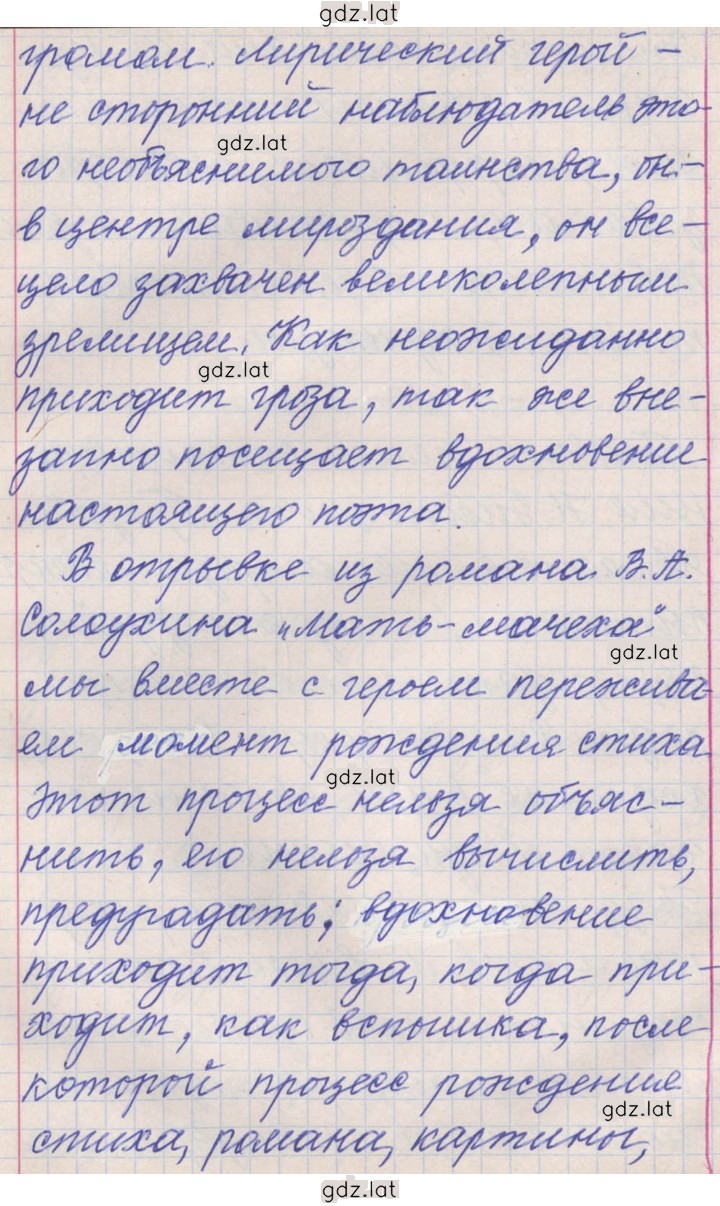 gdz.lat
громом. Лирический герой -
не сторонний наблюдатель это-
gdz.lat
го необъяснимого таинства, он -
в центре мироздания, он все-
цело захвачен великолепным
зрелищем. Как неожиданно
gdz.lat
приходит гроза, так же вне-
запно посещает вдохновение
настоящего поэта.
В отрывке из романа В.А.
Солоухина „Мать-мачеха"
gdz.lat
мы вместе с героем пережива
ем момент рождения стиха
gdz.lat
Этот процесс нельзя объяс-
нить, его нельзя вычислить,
предугадать; вдохновение
приходит тогда, когда при-
ходит, как вспышка, после
которой процесс рождения
gdz.lat
стиха, романа, картины,
gdz.lat